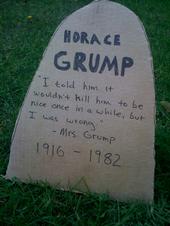 HORACE
GRUMP
"I told him it
wouldn't kill him to be
nice once in a while, but
I was wrong."
- Mrs. Grump
1916 - 1982